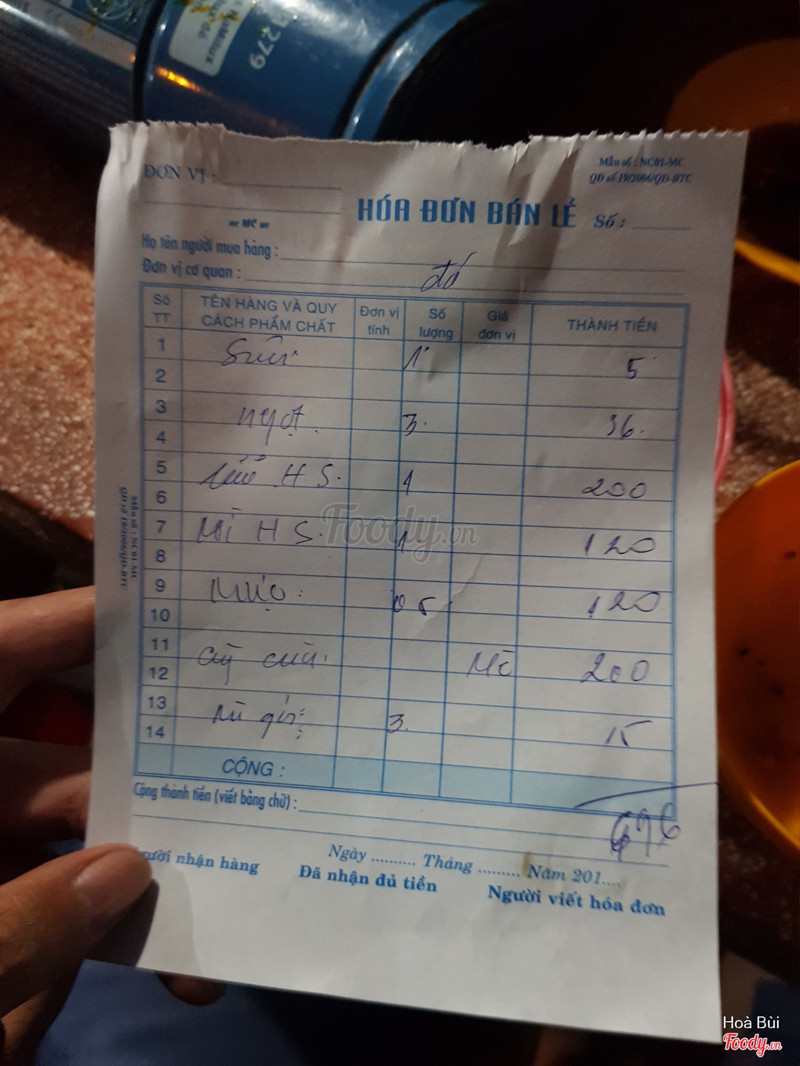 279
ĐƠN VỊ :
Mẫu số : NC01-MC
QĐ số 19/2006/QĐ-BTC
MC
HÓA ĐƠN BÁN LẺ
Số :
Họ tên người mua hàng :
Đơn vị cơ quan :
Số TT TÊN HÀNG VÀ QUY CÁCH PHẨM CHẤT Đơn vị tính Số lượng Giá đơn vị THÀNH TIỀN
1 1 5
2
3 ngọt 3 36
4
5 H S. 1 200
6
7 Mì H S. 1 120
8
9 Mực 05 120
10
11 200
12
13 3 15
14
CỘNG :
676
Cộng thành tiền (viết bằng chữ) :
Ngày .......... Tháng ......... Năm 201....
Người nhận hàng Đã nhận đủ tiền Người viết hóa đơn
Mẫu số : NC01-MC
QĐ số 19/2006/QĐ-BTC
Foody.vn
Hoà Bùi
Foody.vn